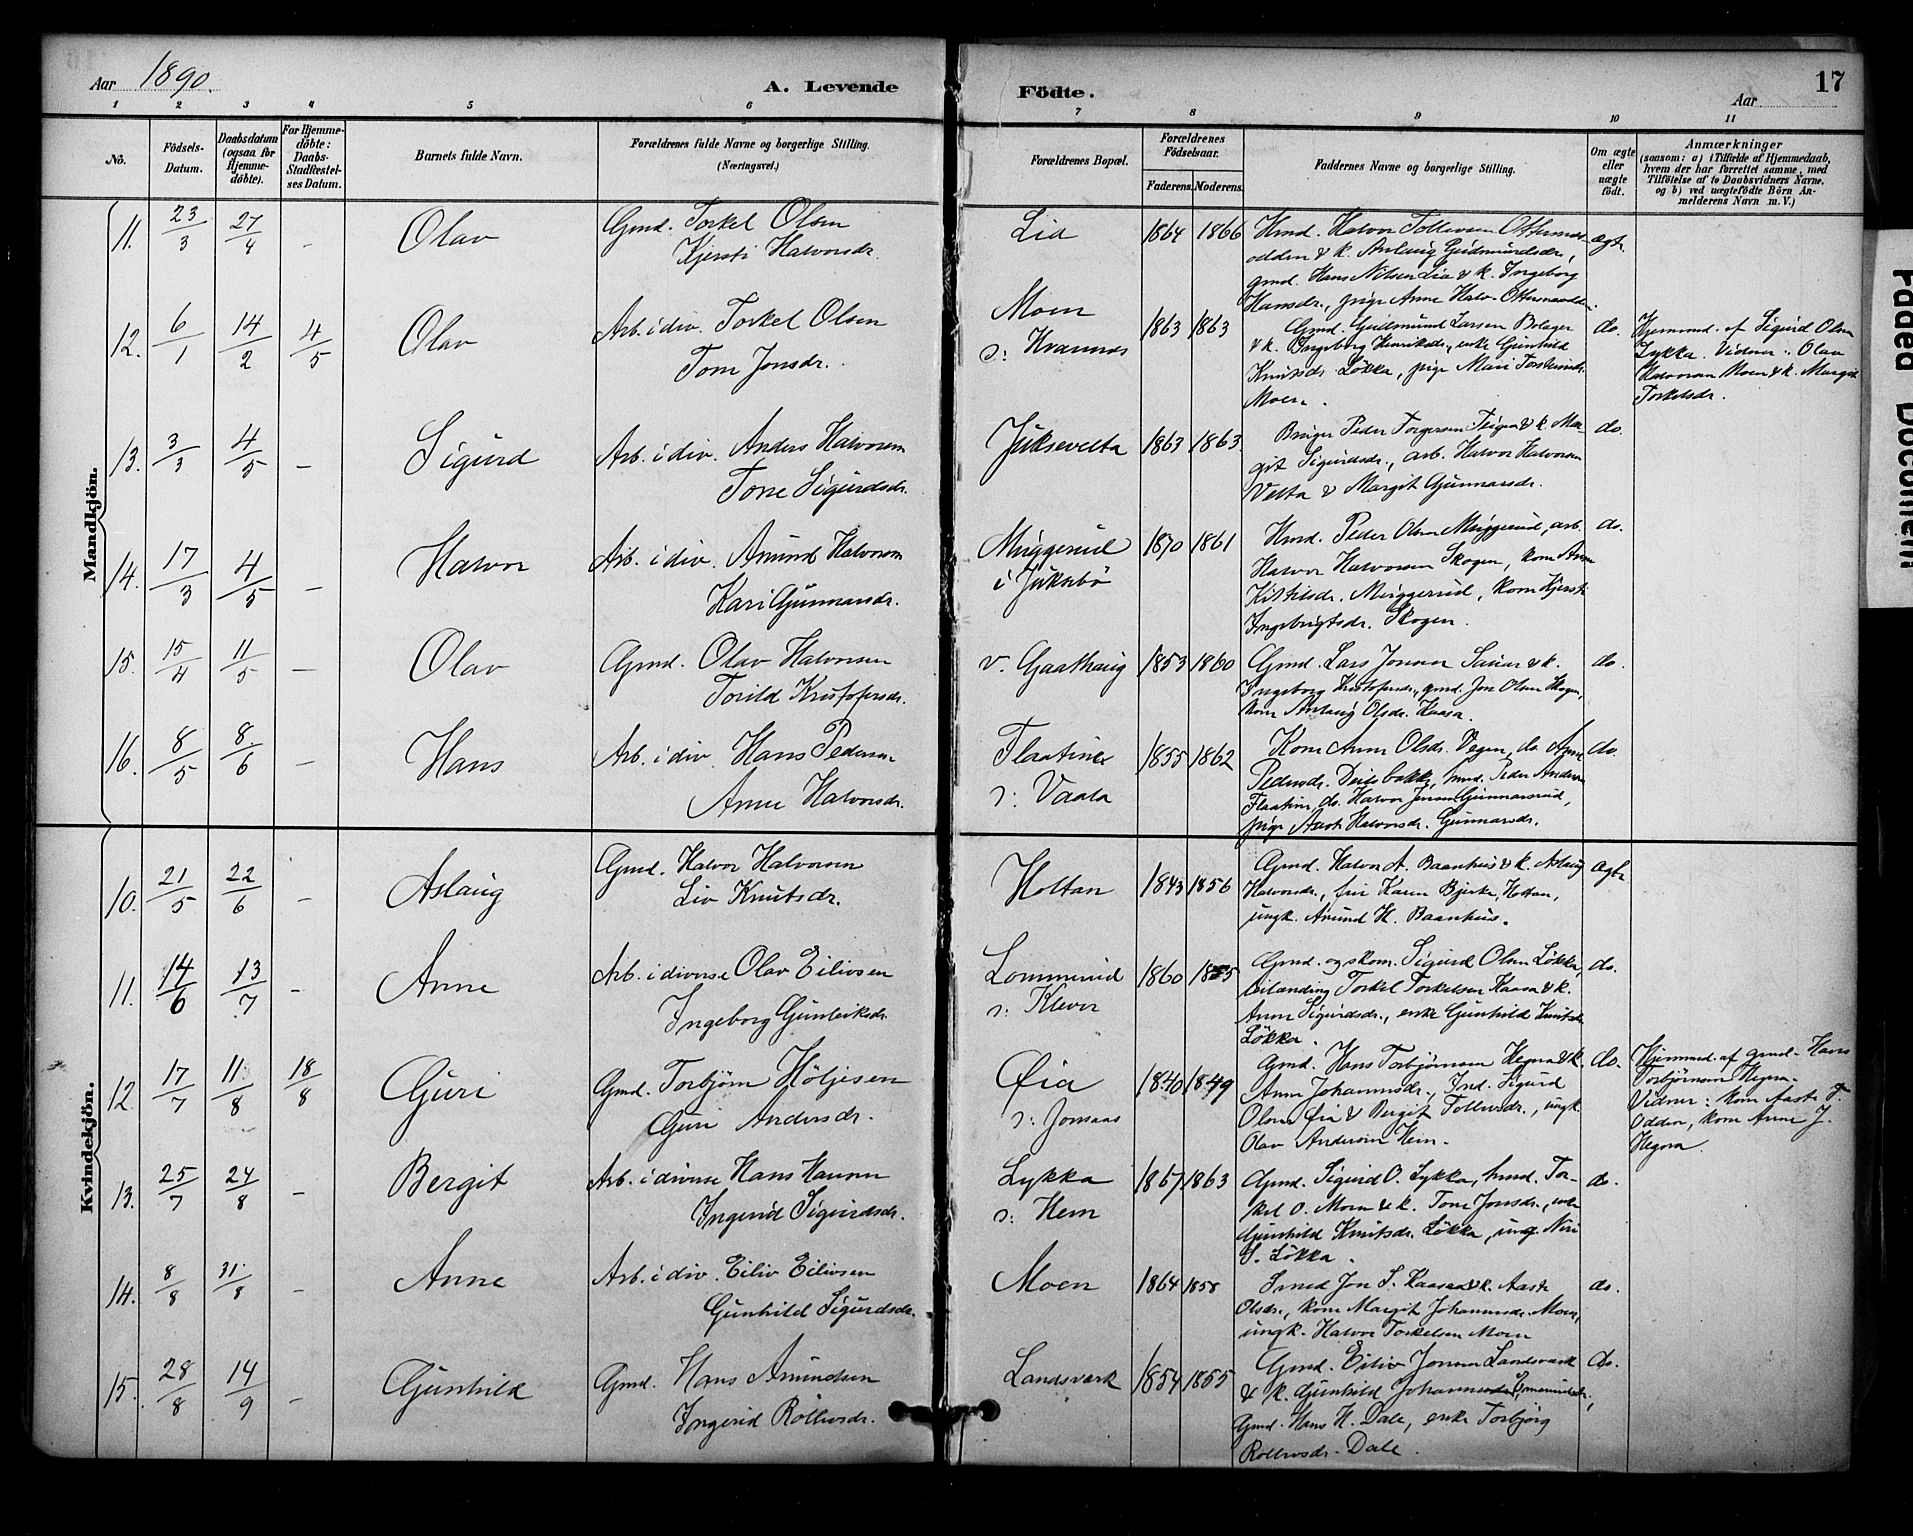 Aar 1890.
A. Levende Födte.
17
Aar
1 2 3 4 5 6 7 8 9 10 11
No.
Födsels-Datum.
Daabsdatum (ogsaa for Hjemme-döbte).
For Hjemme-döbte: Daabs-Stadfæstel-ses Datum.
Barnets fulde Navn.
Forældrenes fulde Navne og borgerlige Stilling. (Næringsvei.)
Forældrenes Bopæl.
Forældrenes Födselsaar.
Faderens. Moderens.
Faddernes Navne og borgerlige Stilling.
Om ægte eller uægte födt.
Anmærkninger
(saasom: a) i Tilfælde af Hjemmedaab,
hvem der har forrettet samme, med
Tilföielse af to Daabsvidners Navne,
og b) ved uægtefödte Börn An-
melderens Navn m. V.)
Mandkjön.
11. 23/3 27/4 - Olav
Gmd. Torkel Olsen
Kjersti Halvorsdr.
Lia 1864 1866
Hmd. Halvor Tollevsen
odden & k. Aslaug Gudmundsdr,
gmd. Hans Nilsen Lia & k. Ingeborg
Hansdr., pige Anne Halv.
ægte
12. 6/1 14/2 4/5 Olav
Arb. i div. Torkel Olsen
Tone Jonsdr.
Moen
s: Kvannes 1863 1863
Gmd. Gudmund Larsen Bolager
& k. Ingeborg Henriksdr., enke Gunhild
Knutsdr. Løkka, pige Mari
Moen.
do.
Hjemmed. af Sigurd Olsen
Lykka. Vidner: Olav
Halvorsen Moen & k. Margit
Torkelsdr.
13. 3/3 4/5 - Sigurd
Arb. i div. Anders Halvorsen
Tone Sigurdsdr.
Juksevelta 1863 1863.
Bruger Peder Torgersen Teigen & k. Mar
git Sigurdsdr., arb. Halvor Halvorsen
Velta & Margit Gunnarsdr.
do.
14. 17/3 4/5 - Halvor
Arb. i div. Amund Halvorsen
Kari Gunnarsdr.
Muggerud
i Juksebø 1870 1861
Hmd. Peder Olsen Muggerud, arb.
Halvor Halvorsen Skogen, kone Anne
Kittilsdr. Muggerud, kone Kjersti
Ingebrigtsdr. Skogen.
do.
15. 15/4 11/5 - Olav
Gmd. Olav Halvorsen
Torild Kristofersdr.
v. Gaathaug 1853 1860
Gmd. Lars Jonsen Sauar & k.
Ingeborg Kristofersdr., gmd. Jon Olsen Skogen,
kone Aslaug Olsdr. Kaasa.
do.
16. 8/5 8/6 - Hans
Arb. i div. Hans Pedersen
Anne Halvorsdr.
Flaatine
s: Vaala 1855 1862
Kone Anne Olsdr. Vegen, do. Anne
Pedersdr. bakke, hmd. Peder Andersen
Flaatin, do. Halvor Jensen Gunnarsrud,
pige Halvorsdr. Gunnarsdr.
do.
Kvindekjön.
10. 21/5 22/6 - Aslaug
Gmd. Halvor Halvorsen
Liv Knutsdr.
Holtan 1843 1856
Gmd. Halvor A. Baanhus & k. Aslaug
Halvorsdr., fru Karen Bjerke, Holtan,
ungk. Amund H. Baanhus.
ægte
11. 14/6 13/7 - Anne
Arb. i diverse Olav Eilivsen
Ingeborg Gunleiksdr.
Lommerud
s: Kleven 1860 1855
Gmd. og skom. Sigurd Olsen Løkka,
Torkel Torkelsen Kaasa & k.
Anne Sigurdsdr., enke Gunhild Knutsdr.
Løkka.
do.
12. 17/7 11/8 18/8 Guri
Gmd. Torbjørn Høljesen
Guri Andersdr.
Øia
s: Jonsaas 1840 1849
Gmd. Hans Torbjørnsen Hegna & k.
Anne Johannesdr., Ind. Sigurd
Olsen Øia & Bergit Tollevsdr., ungk.
Olav Andersen Hem.
do.
Hjemmed. af gmd. Hans
Torbjørnsen Hegna.
Vidner: kone Aaste T.
Odden, kone Anne J.
Hegna.
13. 25/7 24/8 - Bergit
Arb. i diverse Hans Hansen
Ingerid Sigurdsdr.
Lykka
s: Hem 1867 1863
Gmd. Sigurd O. Lykka, hmd. Tor-
kel O. Moen & k. Tone Jonsdr., enke
Gunhild Knutsdr. Løkka, ung.
S. Løkka.
do.
14. 8/8 31/8 - Anne
Arb. i div. Eiliv Eilivsen
Gunhild Sigurdsdr.
Moen 1864 1858
Smed Jon S. Kaasa & k. Aaste
Olsdr., kone Margit Johannesdr. Moen,
ungk. Halvor Torkelsen Moen
do.
15. 28/8 14/9 - Gunhild
Gmd. Hans Amundsen
Ingerid Rollevsdr.
Landsverk 1854 1855
Gmd. Eiliv Jonsen Landsverk
& k. Gunhild
Gmd. Hans H. Dale, enke Torbjørg
Rollevsdr. Dale.
do.